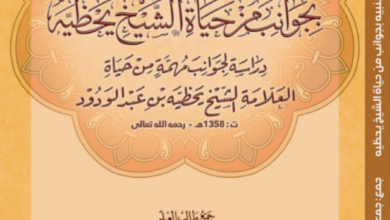 بجوانب من حياة الشيخ يحظيه
دراسة لجوانب مهمة من حياة
العلامة الشيخ يحظيه بن عبد الودود
ت: 1358هـ - رحمه الله تعالى
نبيه بجوانب من حياة الشيخ يحظيه
جمع: